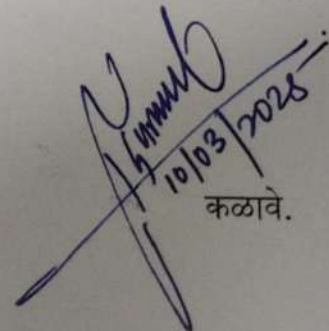 10/03/2025
कळावे.